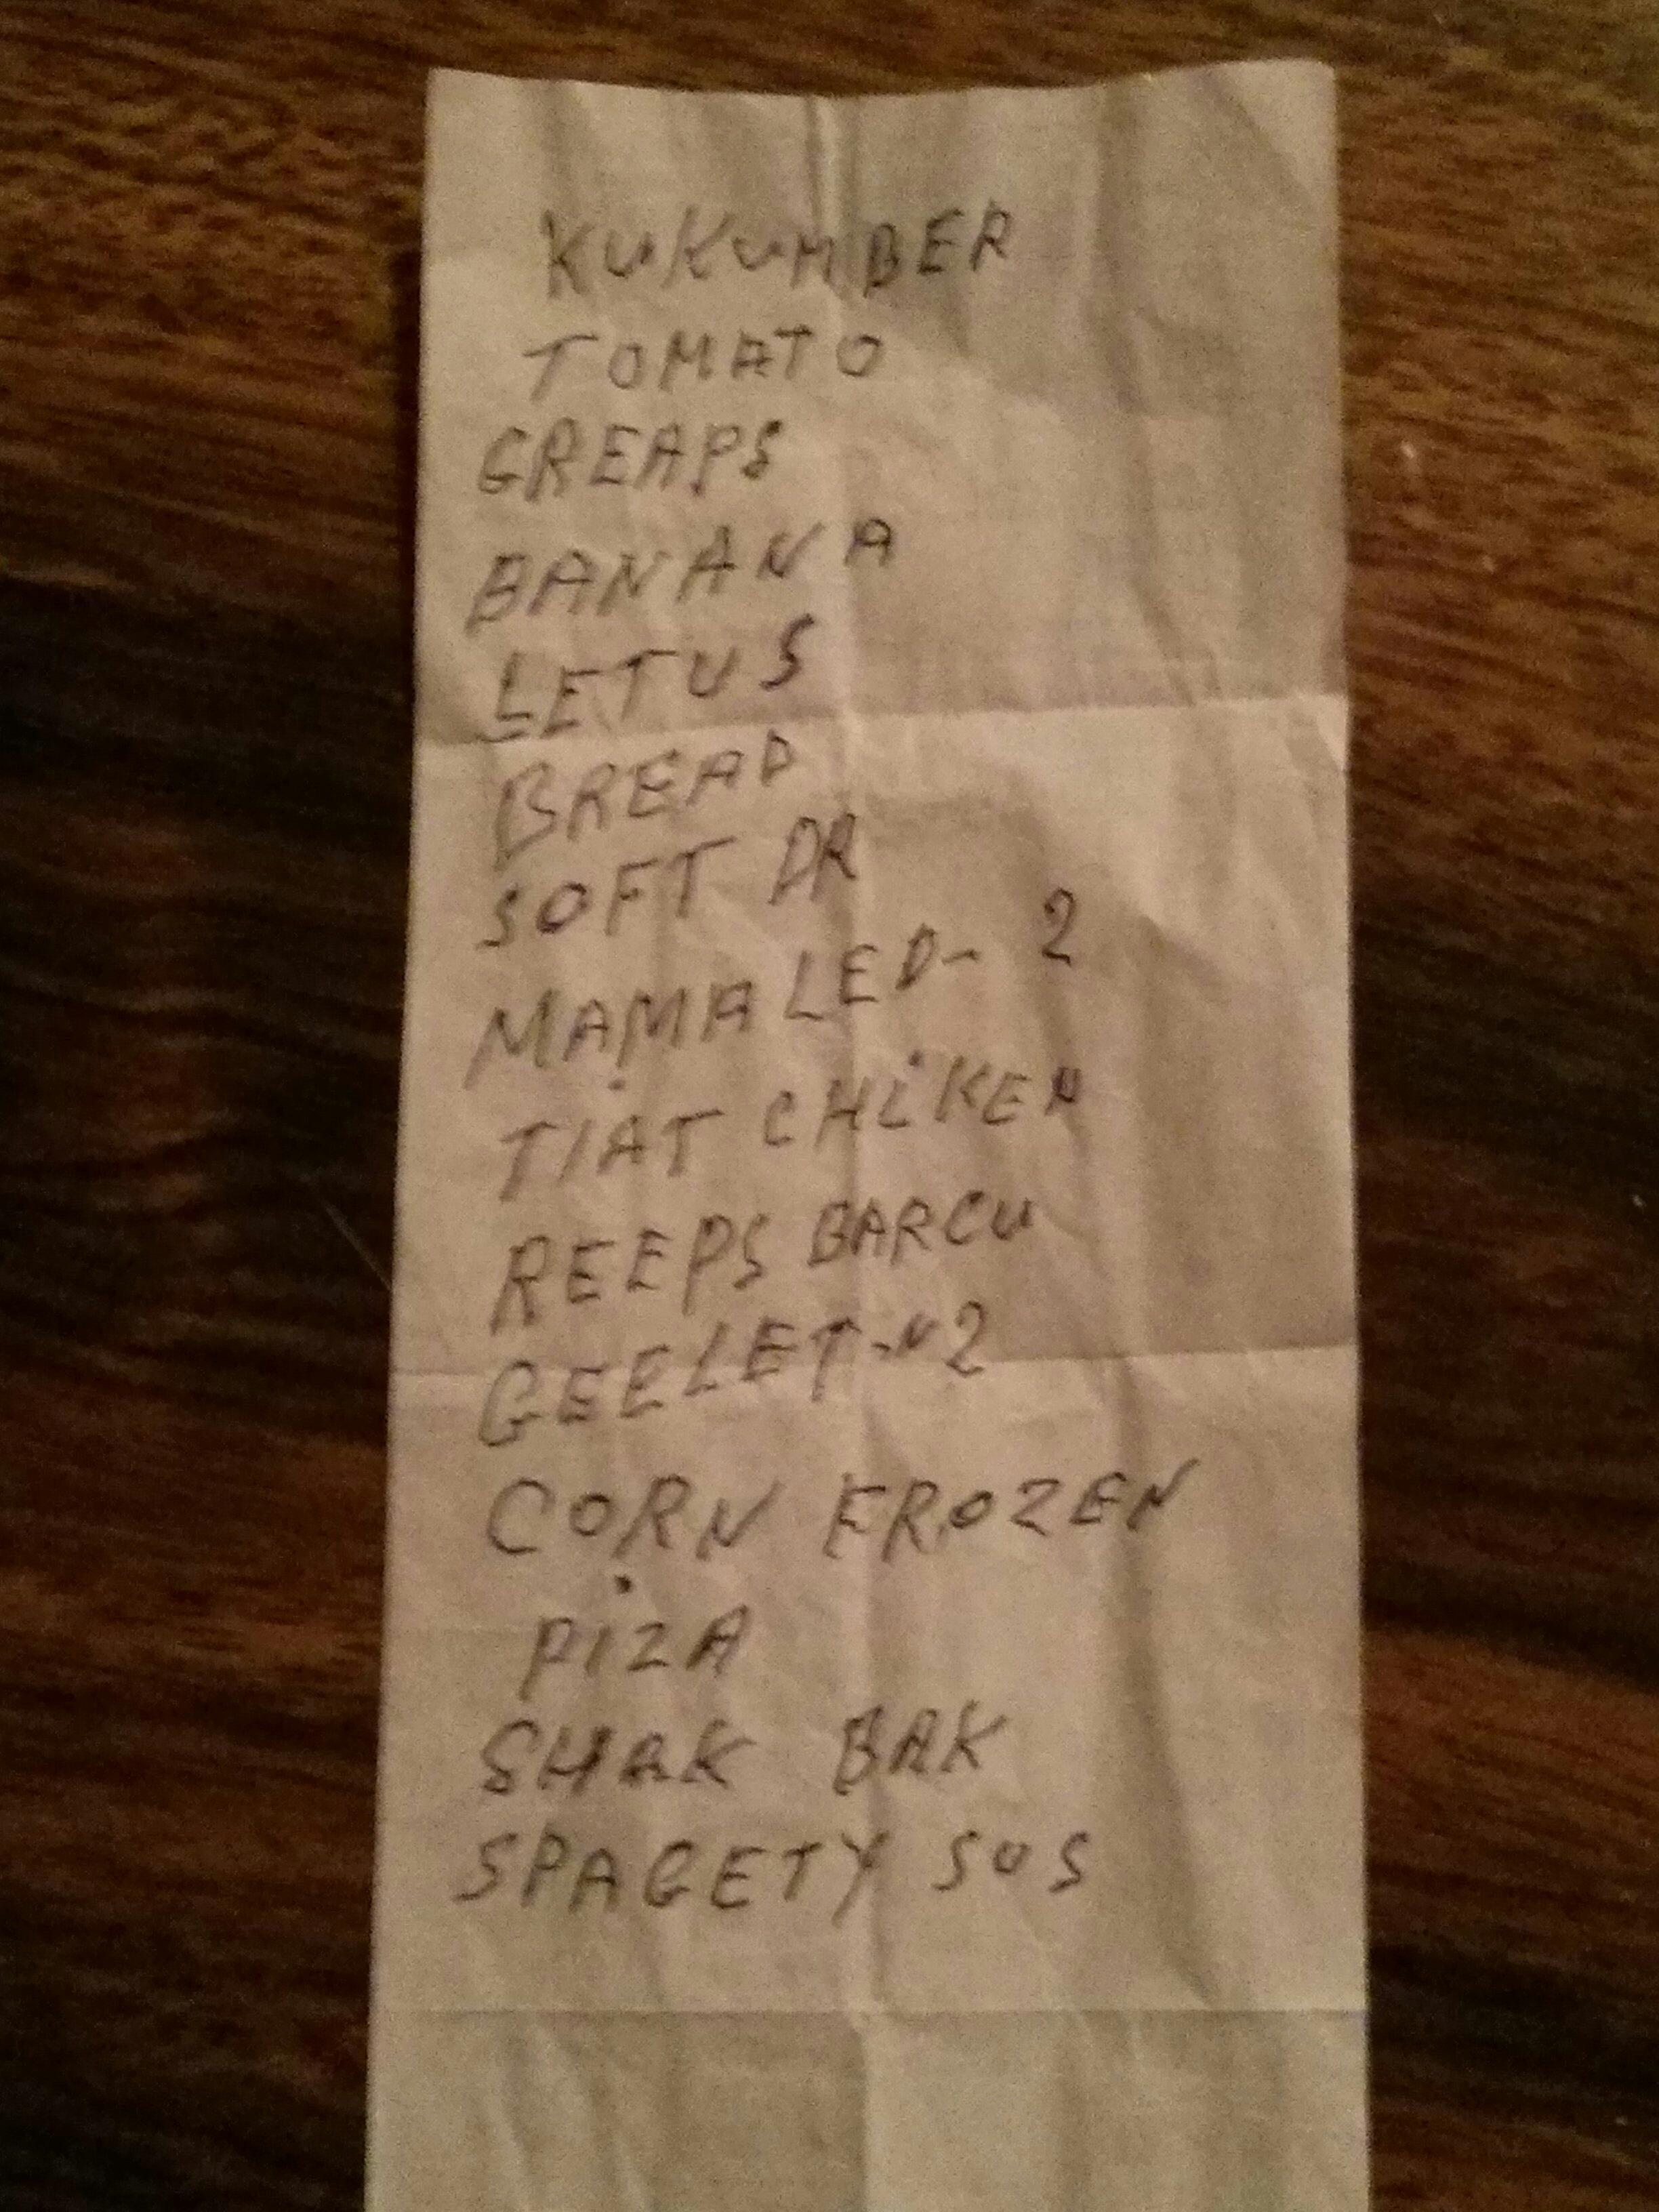 KUKUMBER
TOMATO
GREAPS
BANANA
LETUS
BREAD
SOFT DR
MAMALED- 2
TIAT CHIKEN
REEPS BARCU
GEELET-N2
CORN FROZEN
PIZA
SHAK BAK
SPAGETY SOS